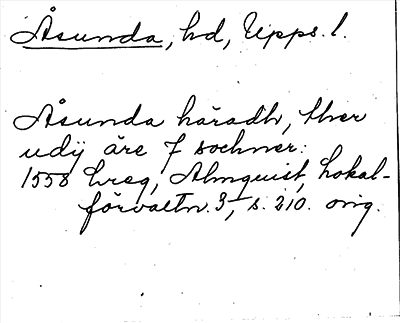 Åsunda, hd, Upps. l.
Åsunda häradh, ther
udÿ äre 7 sochner:
1558 hreg, Almquist, Lokal-
förvaltn. 3, s. 210. orig.